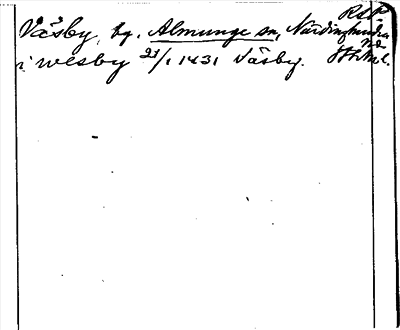 RSP
Väsby, by. Almunge sn, Närdinghundra
hd
i wesby 21/1 1431 Väsby. Sthlm l.